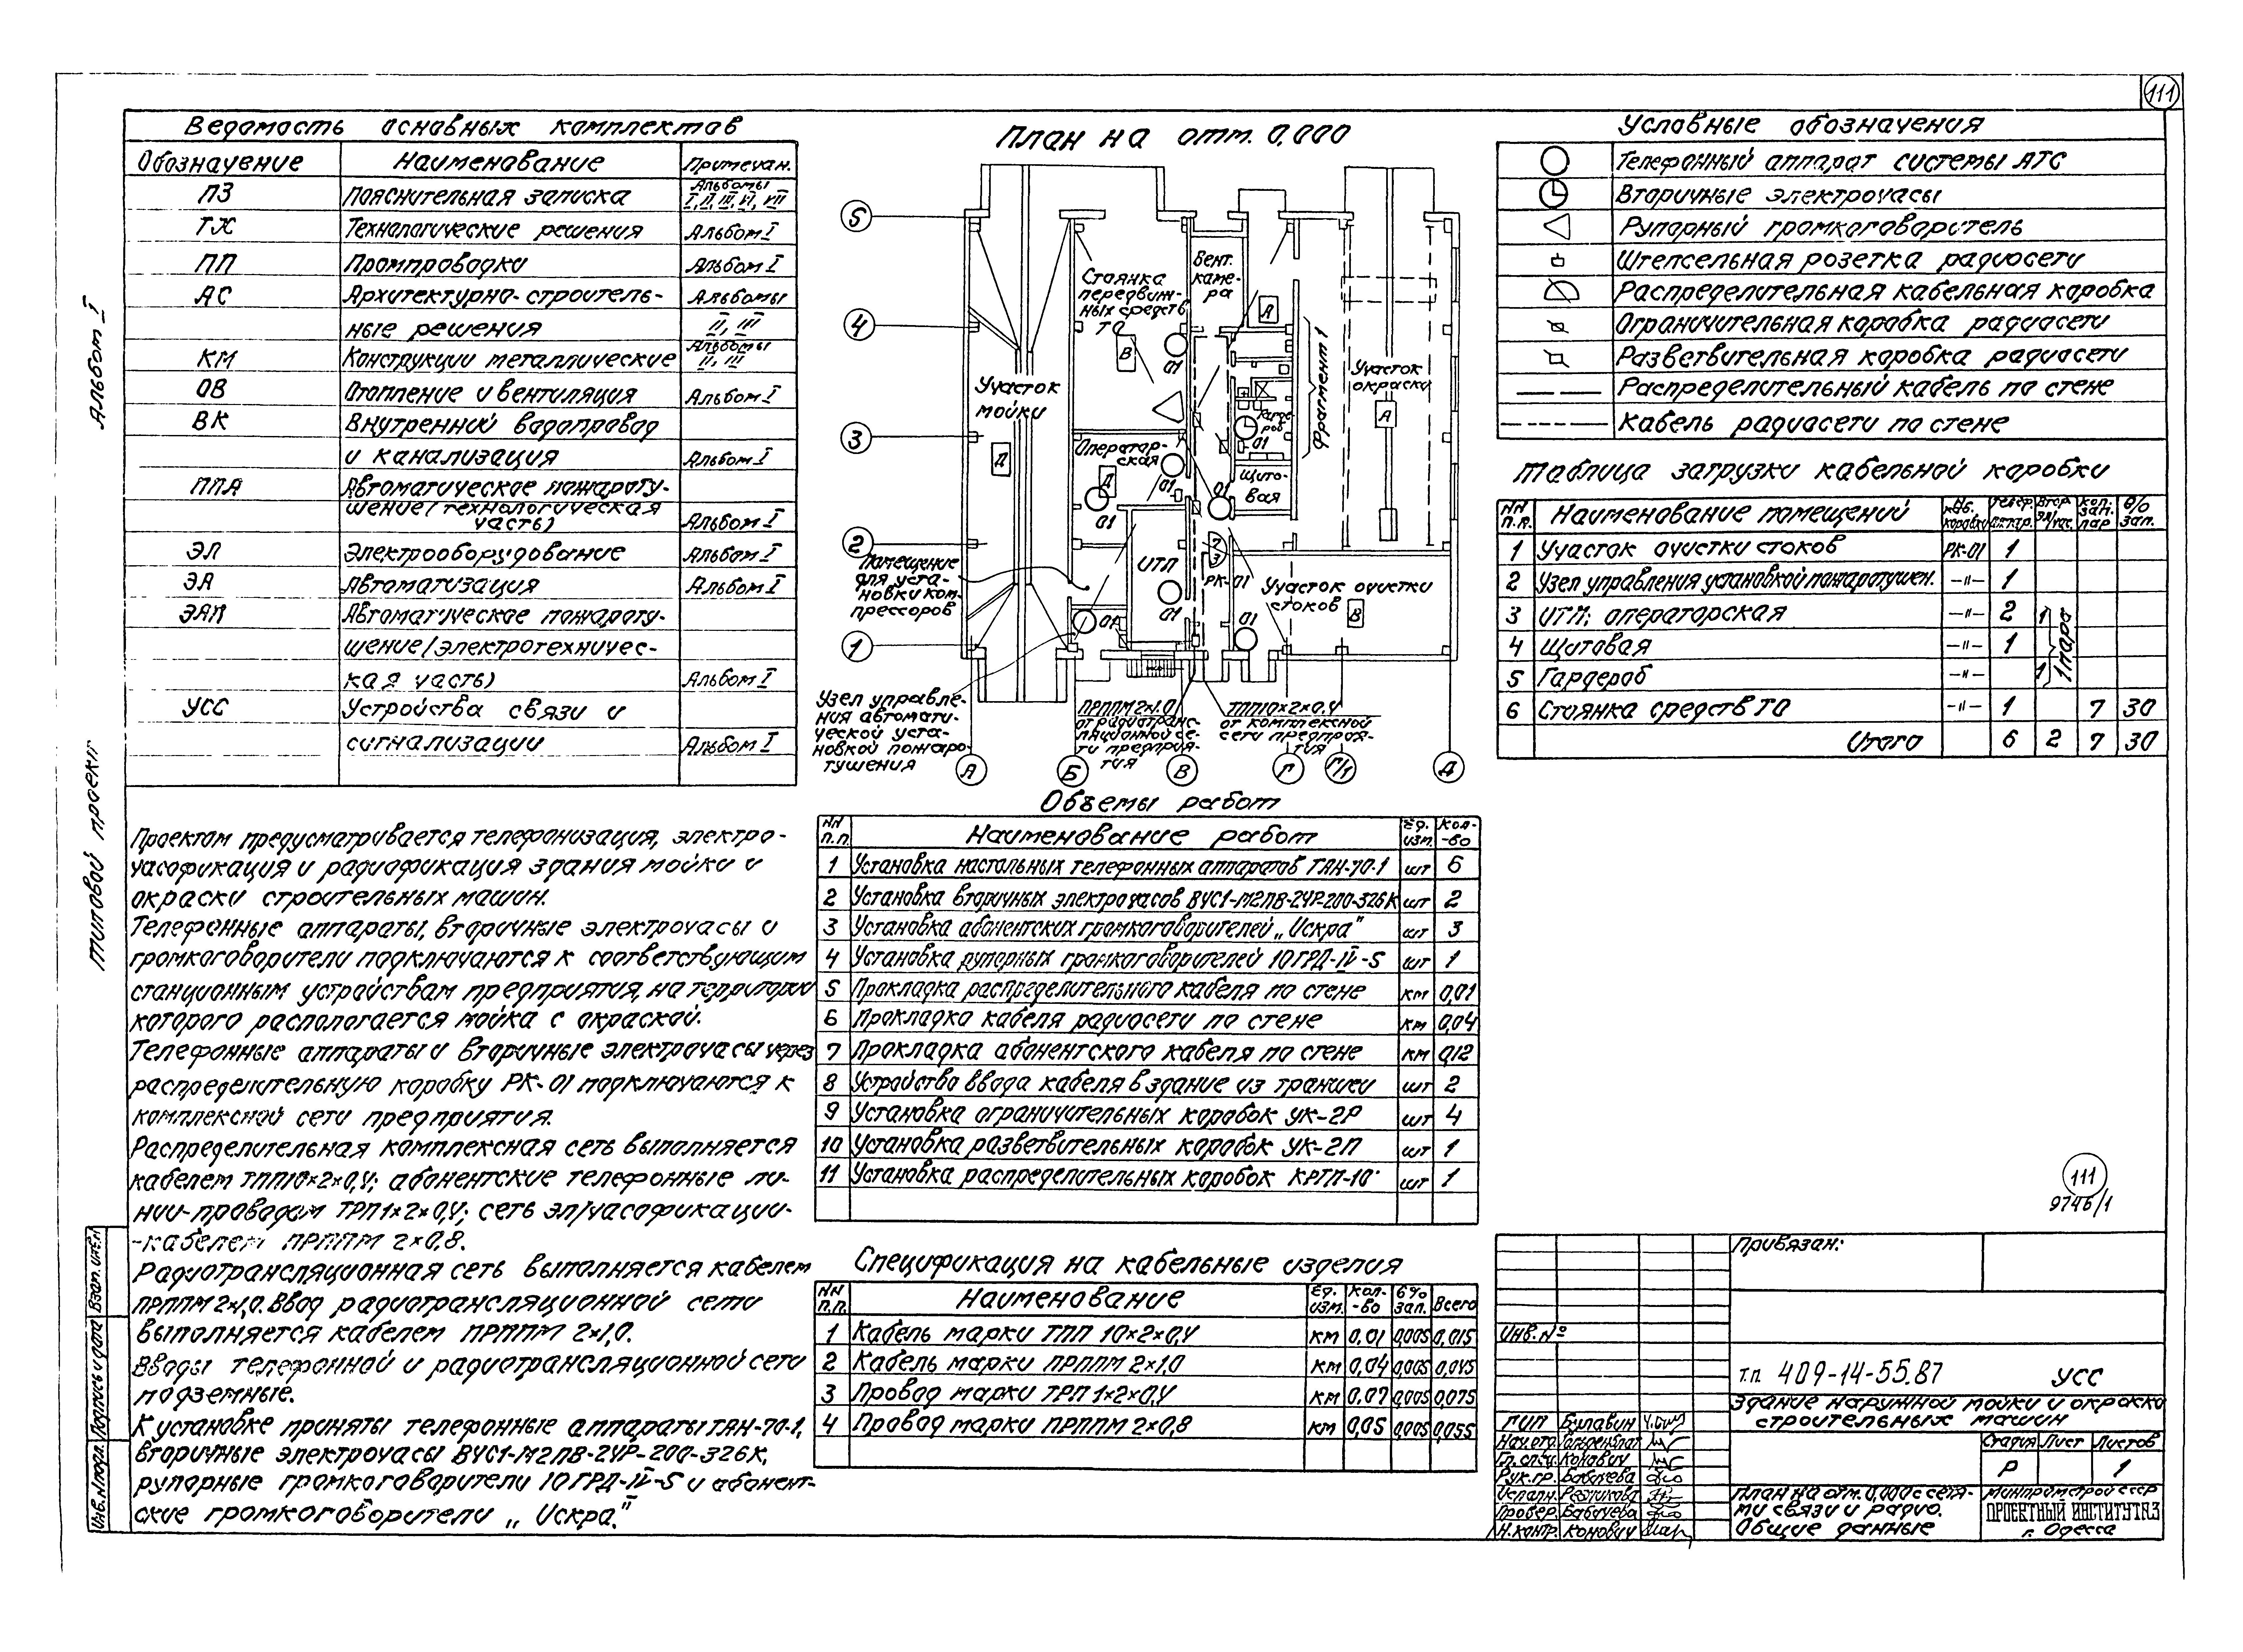 111
Альбом I
Типовой проект
Ведомость основных комплектов
Обозначение Наименование Примечан.
ПЗ Пояснительная записка Альбомы I, II, III, VI, VII
ТХ Технологические решения Альбом I
ПП Промпроводки Альбом I
АС Архитектурно-строитель- Альбомы
ные решения II, III
КМ Конструкции металлические Альбомы II, III
ОВ Отопление и вентиляция Альбом I
ВК Внутренний водопровод
и канализация Альбом I
ППА Автоматическое пожароту-
шение (технологическая
часть) Альбом I
ЭЛ Электрооборудование Альбом I
ЭА Автоматизация Альбом I
ЭАП Автоматическое пожароту-
шение (электротехничес-
кая часть) Альбом I
УСС Устройства связи и
сигнализации Альбом I
Проектом предусматривается телефонизация, электро-
часофикация и радиофикация здания мойки и
окраски строительных машин.
Телефонные аппараты, вторичные электрочасы и
громкоговорители подключаются к соответствующим
станционным устройствам предприятия, на территории
которого распологается мойка с окраской.
Телефонные аппараты и вторичные электрочасы через
распределительную коробку РК-01 подключаются к
комплексной сети предприятия.
Распределительная комплексная сеть выполняется
кабелем ТПП10×2×0,4; абонентские телефонные ли-
нии-проводом ТРП1×2×0,4; сеть эл/часофикации-
-кабелем ПРППМ 2×0,8.
Радиотрансляционная сеть выполняется кабелем
ПРППМ 2×1,0. Ввод радиотрансляционной сети
выполняется кабелем ПРППМ 2×1,0.
Вводы телефонной и радиотрансляционной сети
подземные.
К установке приняты телефонные аппараты ТАН-70-1,
вторичные электрочасы ВУС1-М2ПВ-24Р-200-326К,
рупорные громкоговорители 10ГРД-IV-5 и абонент-
ские громкоговорители „Искра."
План на отм. 0,000
5
4
3
2
1
Стоянка
передвиж-
ных средств
ТО
В
01
Вент.
каме-
ра
А
Участок
мойки
Д
Участок
окраски
А
Фрагмент 1
Гарде-
роб
01
Оператор-
ская
Д
01
01
01
Щито-
вая
Помещение
для уста-
новки ком-
прессоров
ИТП
01
РК-01
Участок очистки
стоков
В
01
01
Узел управле-
ния автомати-
ческой уста-
новкой пожаро-
тушения
ПРППМ 2×1.0
от радиотранс-
ляционной се-
ти предприя-
тия
ТПП10×2×0,4
от комплексной
сети предприя-
тия
А Б В Г Г/1 Д
Объемы работ
NN п.п. Наименование работ Ед. изм. Кол-во
1 Установка настольных телефонных аппаратов ТАН-70-1 шт 6
2 Установка вторичных электрочасов ВУС1-М2ПВ-24Р-200-326К шт 2
3 Установка абонентских громкоговорителей „Искра" шт 3
4 Установка рупорных громкоговорителей 10ГРД-IV-5 шт 1
5 Прокладка распределительного кабеля по стене км 0,01
6 Прокладка кабеля радиосети по стене км 0,04
7 Прокладка абонентского кабеля по стене км 0,12
8 Устройство ввода кабеля в здание из траншеи шт 2
9 Установка ограничительных коробок УК-2Р шт 4
10 Установка разветвительных коробок УК-2П шт 1
11 Установка распределительных коробок КРТП-10 шт 1
Спецификация на кабельные изделия
NN п.п. Наименование Ед. изм. Кол-во 6% зап. Всего
1 Кабель марки ТПП 10×2×0,4 км 0,01 0,005 0,015
2 Кабель марки ПРППМ 2×1,0 км 0,04 0,005 0,045
3 Провод марки ТРП 1×2×0,4 км 0,07 0,005 0,075
4 Провод марки ПРППМ 2×0,8 км 0,05 0,005 0,055
Условные обозначения
Телефонный аппарат системы АТС
Вторичные электрочасы
Рупорный громкоговоритель
Штепсельная розетка радиосети
Распределительная кабельная коробка
Ограничительная коробка радиосети
Разветвительная коробка радиосети
Распределительный кабель по стене
Кабель радиосети по стене
Таблица загрузки кабельной коробки
NN п.п. Наименование помещений каб. коробки Телеф. аппар. Втор. эл/час. кол. зан. пар % зап.
1 Участок очистки стоков РК-01 1
2 Узел управления установкой пожаротушен. -"- 1
3 ИТП; операторская -"- 2 1
4 Щитовая -"- 1 1 пара
5 Гардероб -"- 1
6 Стоянка средств ТО -"- 1 7 30
Итого 6 2 7 30
111
9746/1
Привязан:
Инв. №
т.п. 409-14-55.87 УСС
Здание наружной мойки и окраски
строительных машин
ГИП Булавин
Нач.отд.
Гл. спец. Конович
Рук. гр. Бабичева
Исполн. Резникова
Провер. Бабичева
Н.контр. Конович
Стадия Лист Листов
Р 1
План на отм. 0,000 с сетя-
ми связи и радио.
Общие данные
Минпромстрой СССР
ПРОЕКТНЫЙ ИНСТИТУТ №3
г. Одесса
Взам. инв.N
Подпись и дата
Инв.N подл.